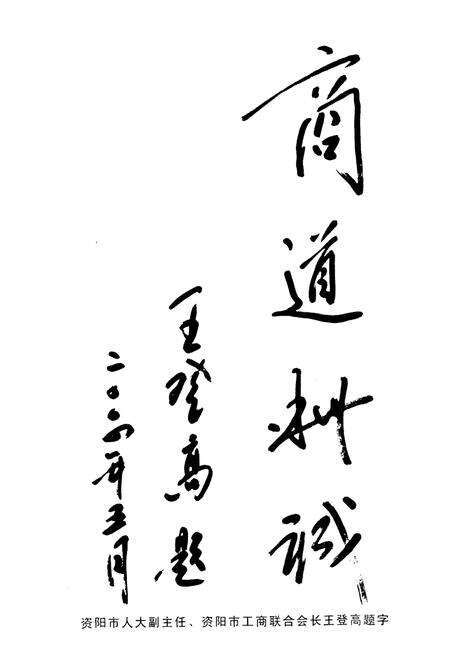 商道酬诚
王登高题
二〇〇六年五月
资阳市人大副主任、资阳市工商联合会长王登高题字